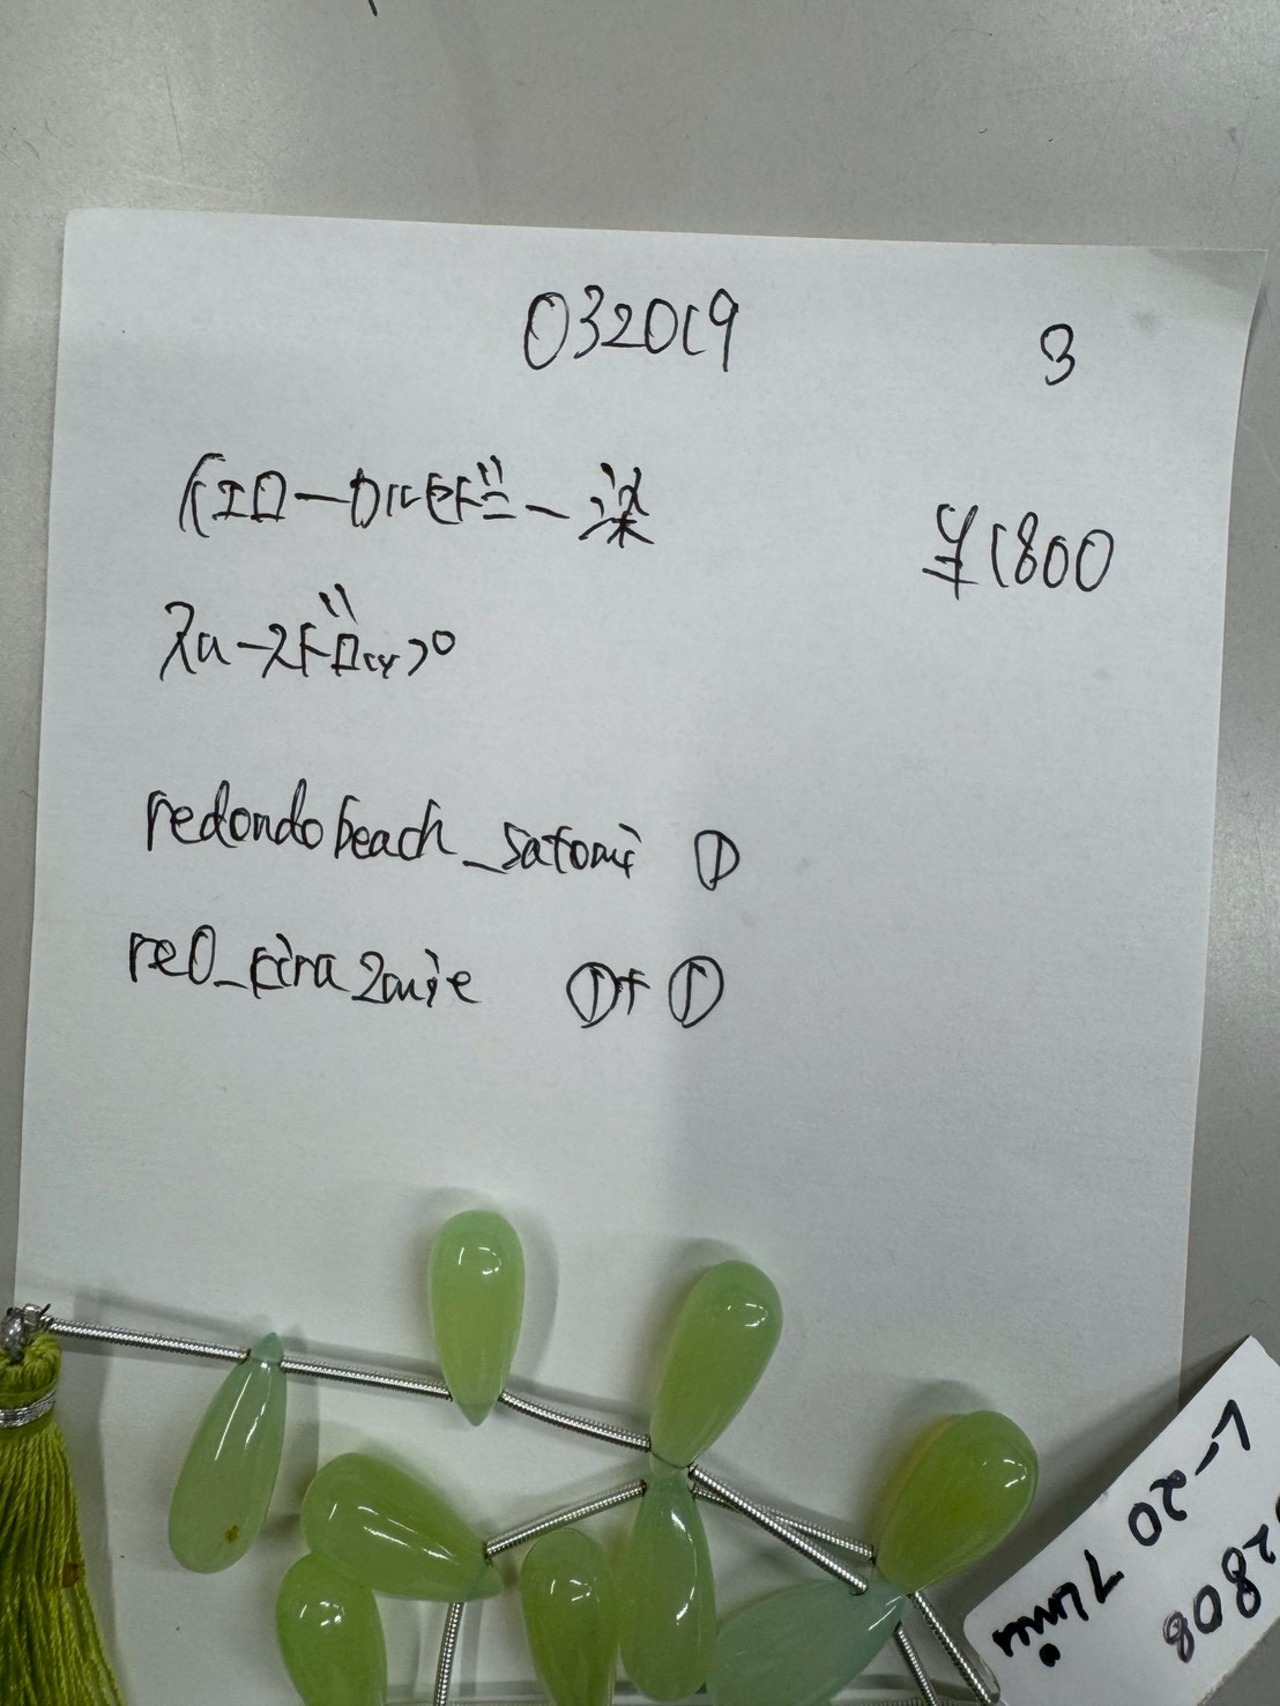 032019 3
イエローカルセドニー染
¥1800
スムースドロップ
redondobeach_satomi ①
re0_kira2mie ①+①
L-20 7Lmii
2808